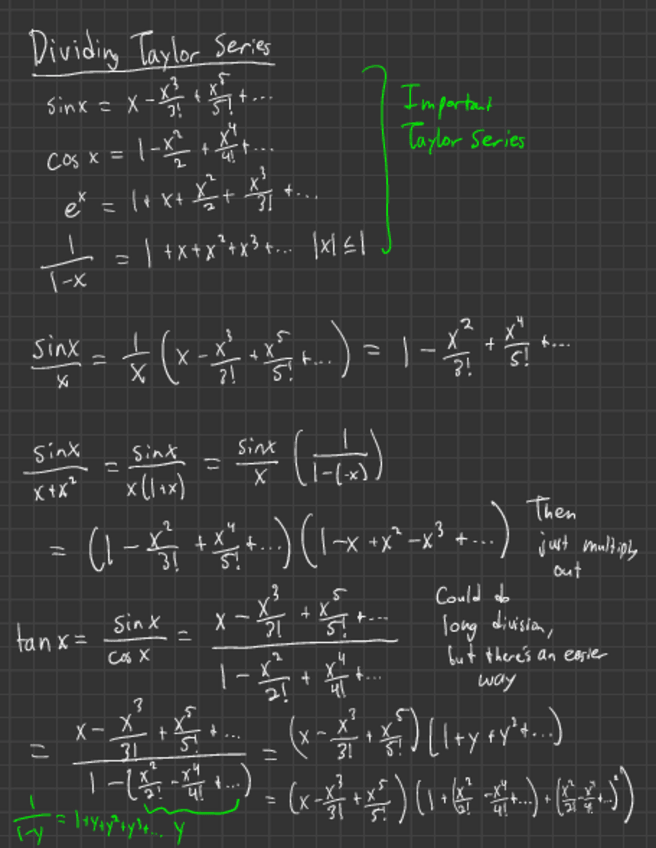 Dividing Taylor Series
sin x = x - x³/3! + x⁵/5! + ...
cos x = 1 - x²/2 + x⁴/4! + ...
eˣ = 1 + x + x²/2 + x³/3! + ...
1/(1-x) = 1 + x + x² + x³ + ... |x| ≤ 1
Important
Taylor Series
sin x/x = 1/x (x - x³/3! + x⁵/5! + ...) = 1 - x²/3! + x⁴/5! + ...
sin x/(x+x²) = sin x/(x(1+x)) = sin x/x (1/(1-(-x)))
= (1 - x²/3! + x⁴/5! + ...)(1 - x + x² - x³ + ...)
Then
just multiply
out
tan x = sin x/cos x = (x - x³/3! + x⁵/5! + ...)/(1 - x²/2! + x⁴/4! + ...)
Could do
long division,
but there's an easier
way
= (x - x³/3! + x⁵/5! + ...)/(1 - (x²/2! - x⁴/4! + ...)) = (x - x³/3! + x⁵/5!)(1 + y + y² + ...)
= (x - x³/3! + x⁵/5!)(1 + (x²/2! - x⁴/4! + ...) + (x²/2! - x⁴/4! + ...)²)
1/(1-y) = 1 + y + y² + y³ + ... y